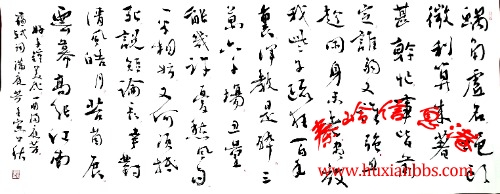 蝸角虛名蠅頭
微利算來著
甚幹忙事皆前
定誰弱又誰強且
趁閑身未老盡放
我些子疏狂百年
裏渾教是醉三
萬六千場思量
能幾許憂愁風雨
一半相妨又何須抵
死說短論長幸對
清風皓月苔茵展
雲幕高張江南
好千鍾美酒一曲滿庭芳
蘇軾詞滿庭芳
www.huxianbbs.com